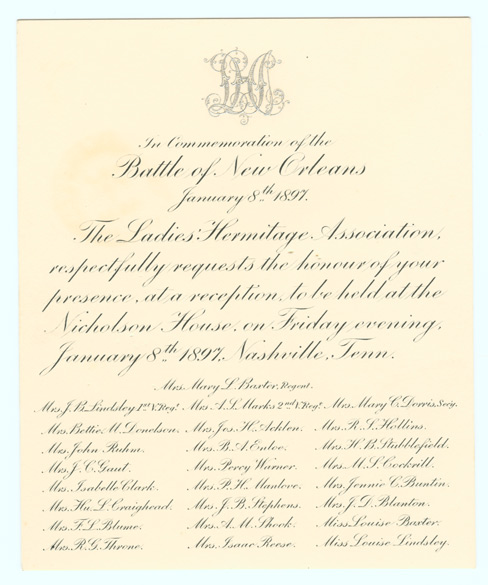 LHA
In Commemoration of the
Battle of New Orleans
January 8th 1897.
The Ladies' Hermitage Association,
respectfully requests the honour of your
presence, at a reception, to be held at the
Nicholson House, on Friday evening,
January 8th 1897, Nashville, Tenn.
Mrs. Mary L. Baxter, Regent.
Mrs. J. B. Lindsley 1st V. Regt. Mrs. A. S. Marks 2nd V. Regt. Mrs. Mary C. Dorris, Secy.
Mrs. Bettie M. Donelson. Mrs. Jos. H. Acklen. Mrs. R. S. Hollins.
Mrs. John Ruhm. Mrs. B. A. Enloe. Mrs. H. B. Stubblefield.
Mrs. J. C. Gaut. Mrs. Percy Warner. Mrs. M. S. Cockrill.
Mrs. Isabelle Clark. Mrs. P. H. Manlove. Mrs. Jennie C. Buntin.
Mrs. Hu. L. Craighead. Mrs. J. B. Stephens. Mrs. J. D. Blanton.
Mrs. F. L. Blume. Mrs. A. M. Shook. Miss Louise Baxter.
Mrs. R. G. Throne. Mrs. Isaac Reese. Miss Louise Lindsley.